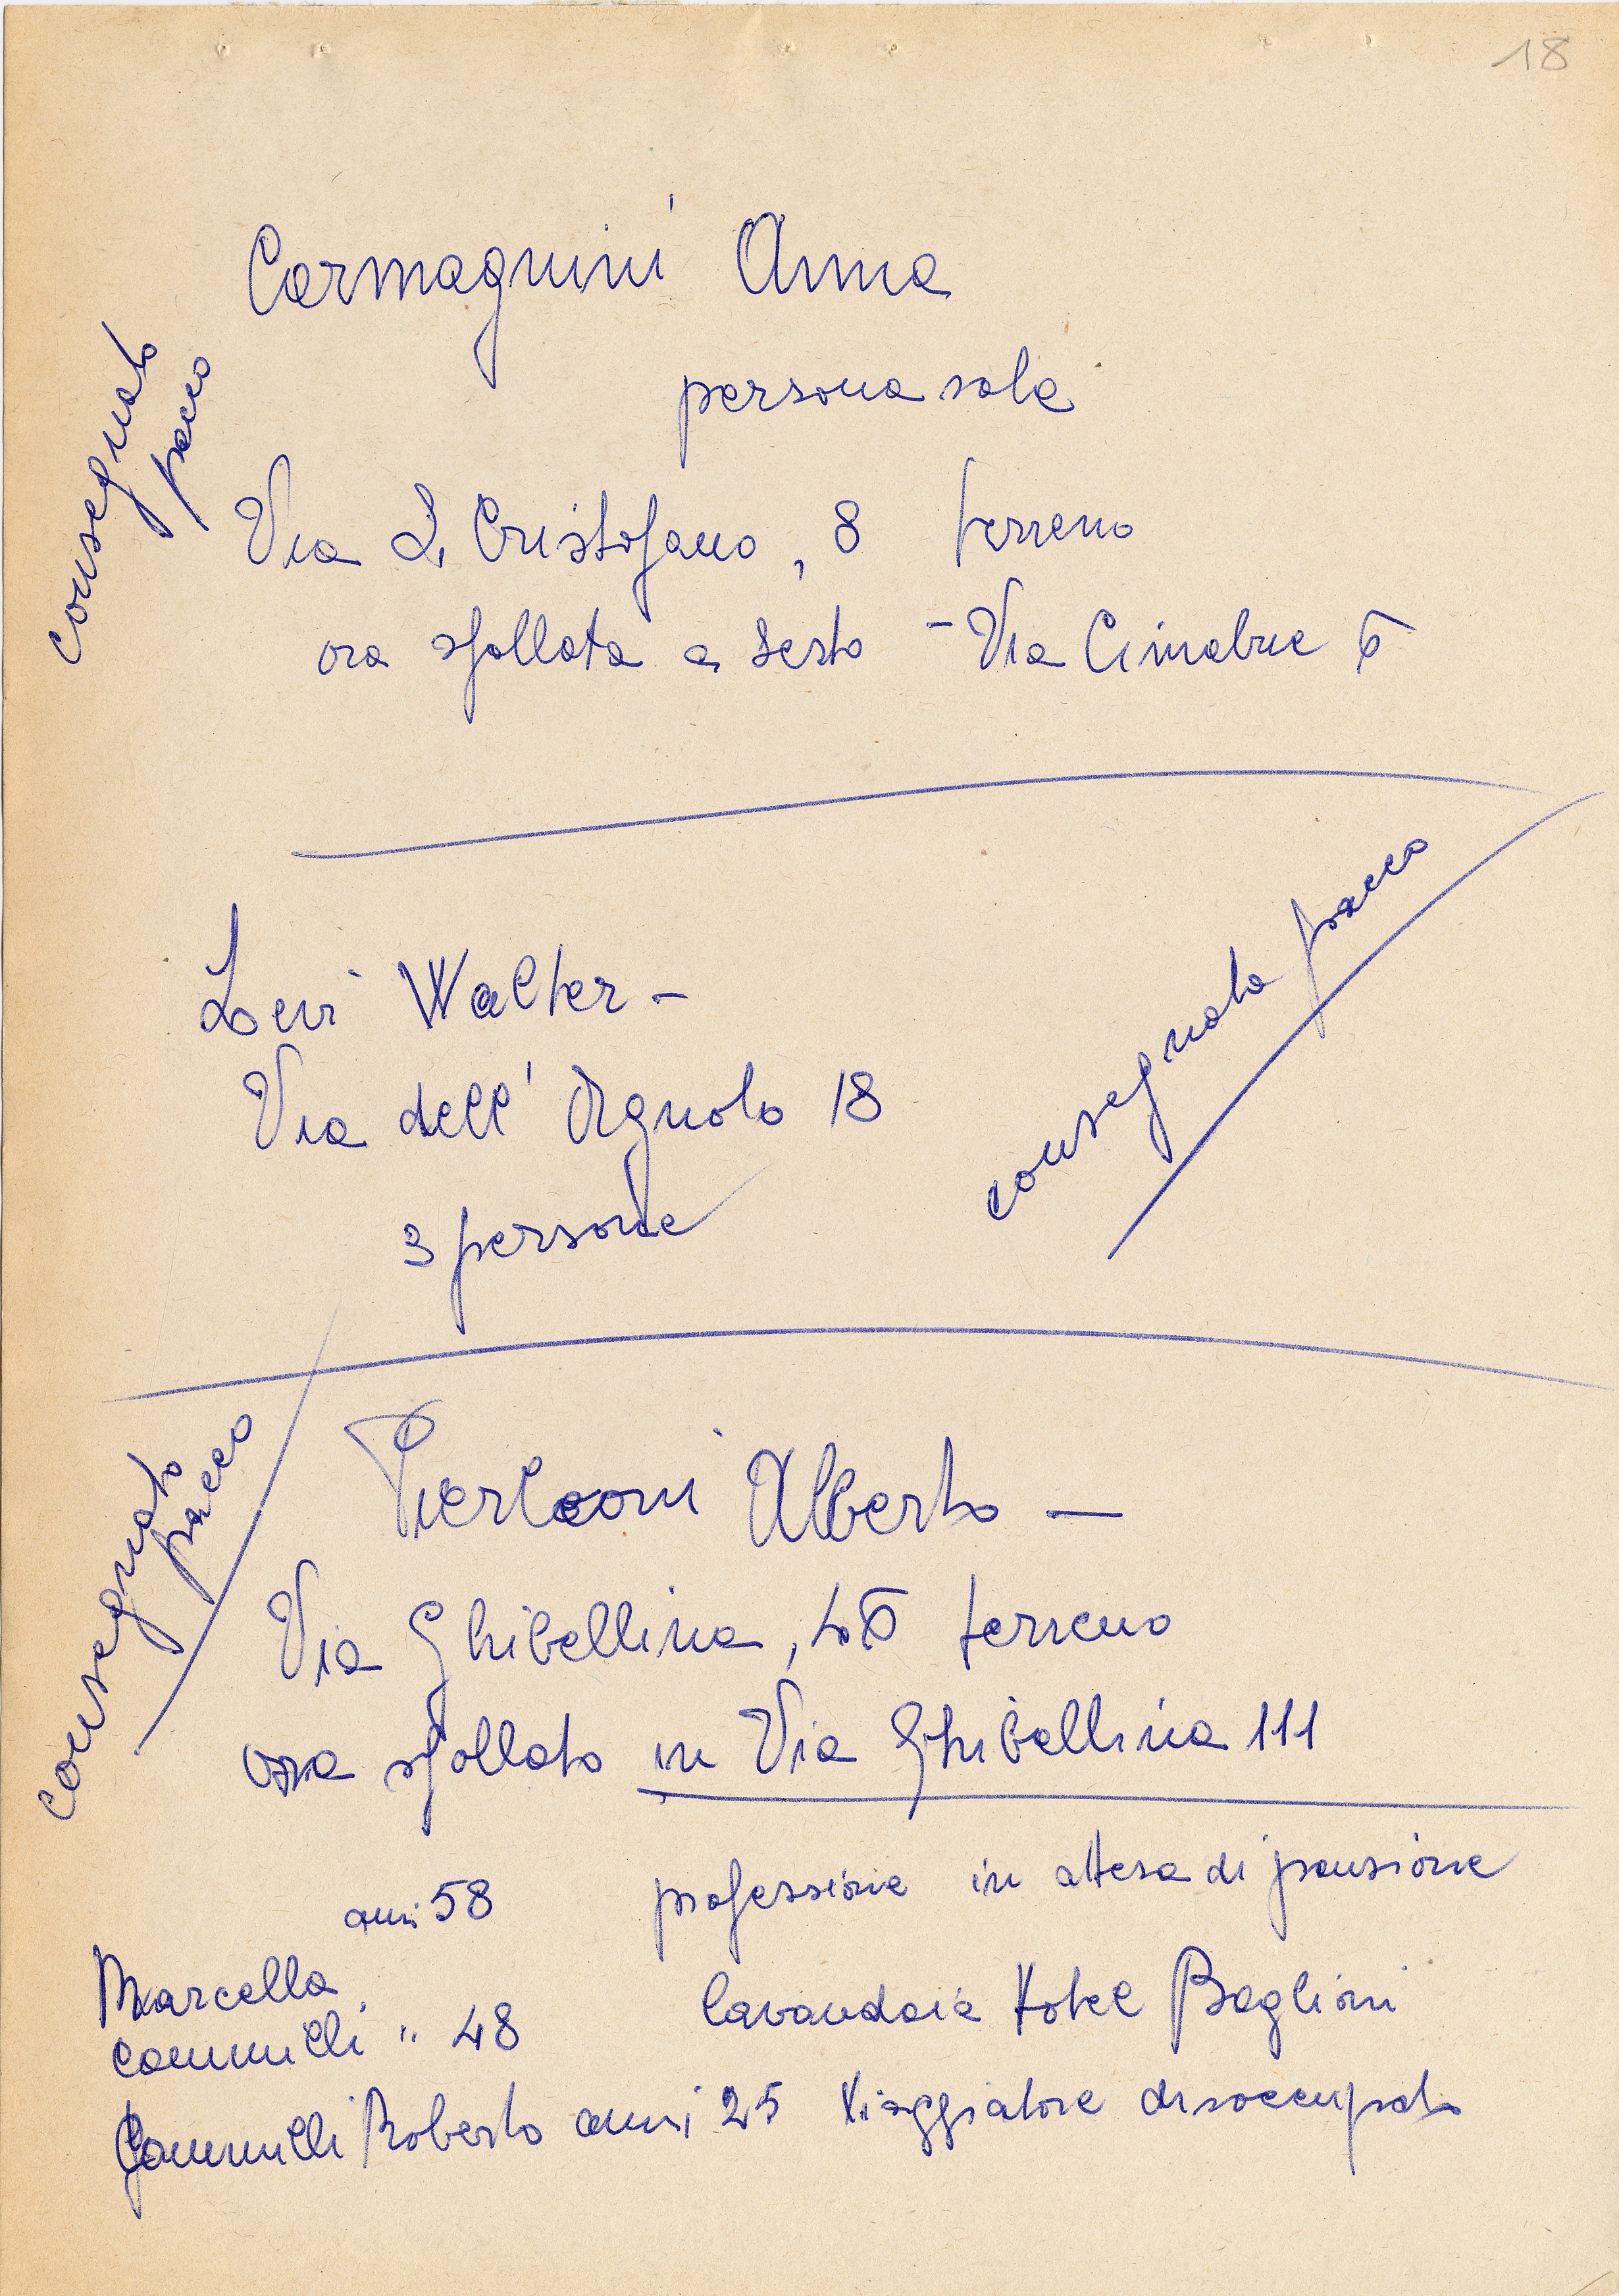 18
Carmagnini Anna
persona sola
consegnato
pacco
Via S. Cristofano, 8 terreno
ora sfollata a Sesto - Via Cimabue 6
Levi Walter -
consegnato pacco
Via dell' Agnolo 18
3 persone
Pierleoni Alberto -
consegnato
pacco
Via Ghibellina, terreno
ora sfollato in Via Ghibellina 111
anni 58 professione in attesa di pensione
Marcella
" 48 lavandaia Hotel Baglioni
Roberto anni 25 Viaggiatore disoccupato